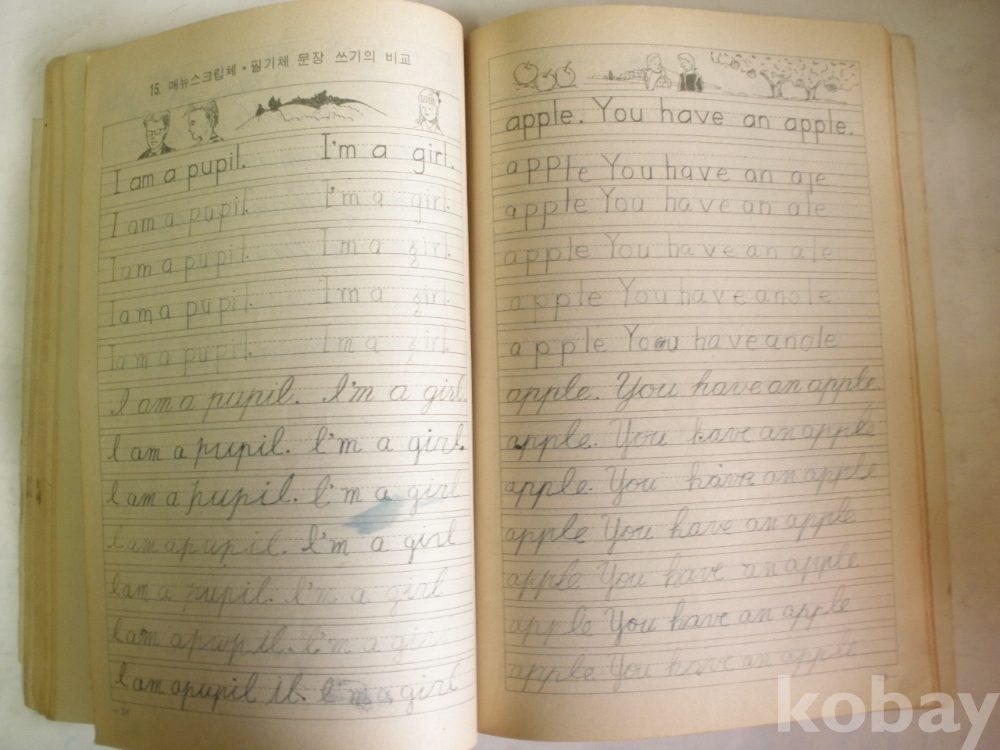 15. 매뉴스크립체·필기체 문장 쓰기의 비교
I am a pupil. I'm a girl.
I am a pupil. I'm a girl.
I am a pupil. I'm a girl.
I am a pupil. I'm a girl.
I am a pupil. I'm a girl
I am a pupil. I'm a girl.
I am a pupil. I'm a girl.
I am a pupil. I'm a girl
I am a pupil. I'm a girl
I am a pupil. I'm a girl
I am a pupil. I'm a girl
I am a pupil il. I'm a girl
apple. You have an apple.
apple You have an ale
apple You have an ale
apple You have an ale
apple You have an ole
apple You have an ole
apple. You have an apple.
apple. You have an apple
apple. You have an apple
apple You have an apple
apple You have an apple
apple You have an apple
apple You have an apple
kobay